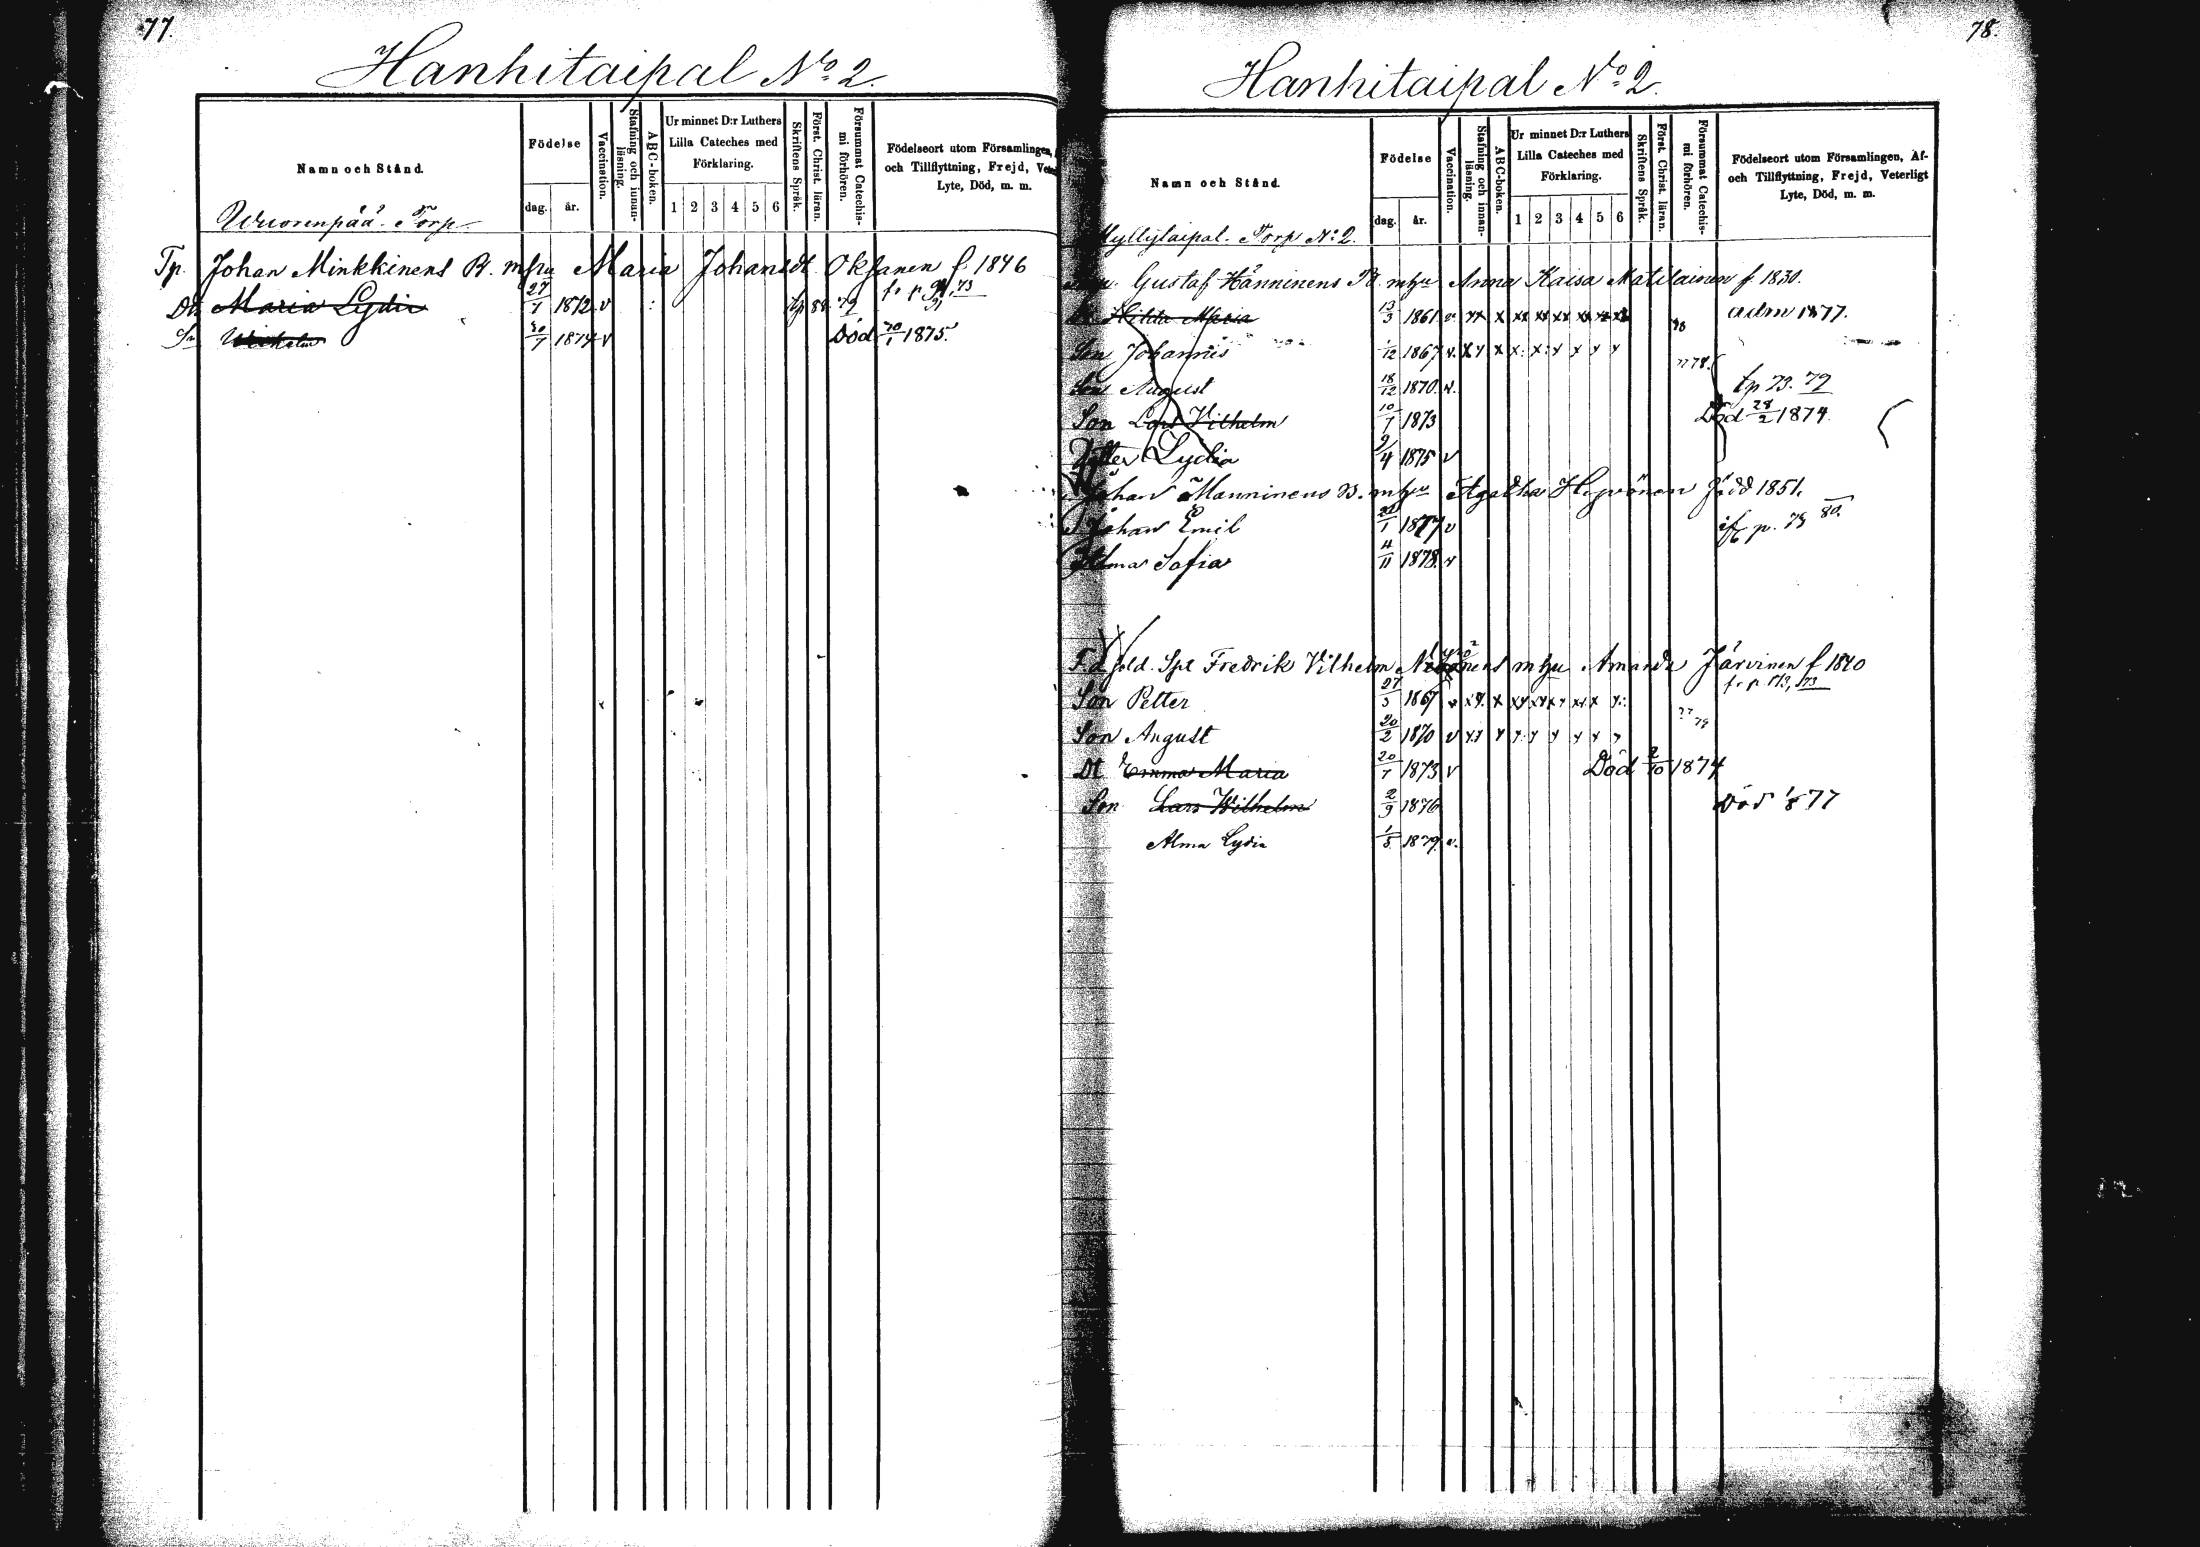 77.
Hanhitaipal No 2.
Namn och Stånd.
Födelse
dag. år.
Vaccination.
Stafning och innan-läsning.
ABC-boken.
Ur minnet D:r Luthers
Lilla Cateches med
Förklaring.
1 2 3 4 5 6
Skriftens Språk.
Först. Christ. läran.
Försummat Catechis-
mi förhören.
Födelseort utom Församlingen,
och Tillflyttning, Frejd,
Lyte, Död, m. m.
Wuorenpää. Torp
Tp. Johan Minkkinens B. mhu Maria Johansdt Oksanen f. 1846
Dr. Maria Lydia 27/1 1872 v
Sn Wilhelm 30/7 1874 v Död 20/1 1875.
78.
Hanhitaipal No 2.
Namn och Stånd.
Födelse
dag. år.
Vaccination.
Stafning och innan-läsning.
ABC-boken.
Ur minnet D:r Luthers
Lilla Cateches med
Förklaring.
1 2 3 4 5 6
Skriftens Språk.
Först. Christ. läran.
Försummat Catechis-
mi förhören.
Födelseort utom Församlingen, Af-
och Tillflyttning, Frejd, Veterligt
Lyte, Död, m. m.
Myllytaipal. Torp No 2.
Gustaf Hänninens B. mhu Anna Kaisa Matilainen f. 1830.
Hilda Maria 13/3 1861 v xx x xx xx xx xx xx adm 1877.
Son Johannes 1/12 1867 v. x x x x x x x x x
Son August 18/12 1870. v. tp 73. 79
Son Lars Vilhelm 10/7 1873 Död 28/2 1874
Dotter Lydia 9/4 1875 v
Johan Manninens B. mhu Agatha Hyvönen född 1851.
Johan Emil 1877 v p. 79 80.
Alma Sofia 4/11 1878. v
F.d. Sold. Spl Fredrik Vilhelm mhu Amanda Järvinen f 1840
Son Petter 27/5 1867 v
Son August 20/2 1870 v
Dt Emma Maria 20/7 1873 v Död 2/10 1874
Son Lars Wilhelm 2/9 1876 Död 1/8 77
Alma Lydia 1/5 1879. v.